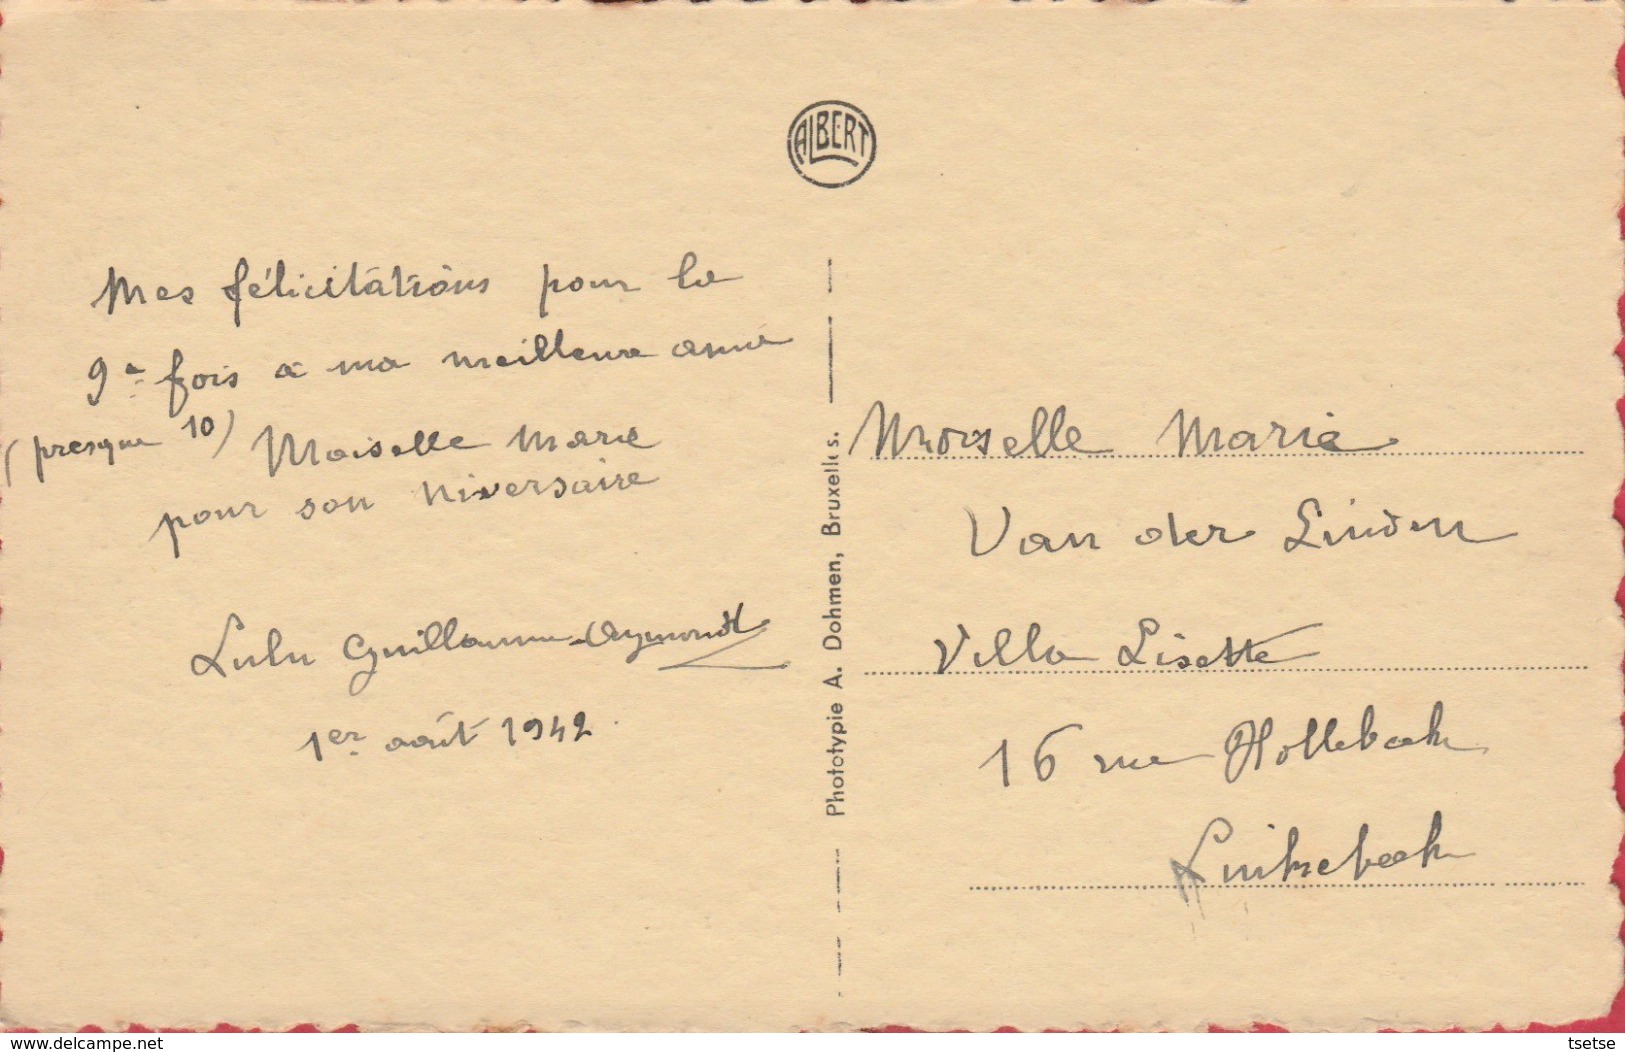 ALBERT
Mes félicitations pour la
9e fois à ma meilleure amie
(presque 10) Moiselle Marie
pour son niversaire
Lulu Guillaume-Raymond
1er août 1942.
Phototypie A. Dohmen, Bruxelles.
Moiselle Marie
Van der Linden
Villa Lisette
16 rue Hollebeek
Linkebeek
www.delcampe.net
tsetse